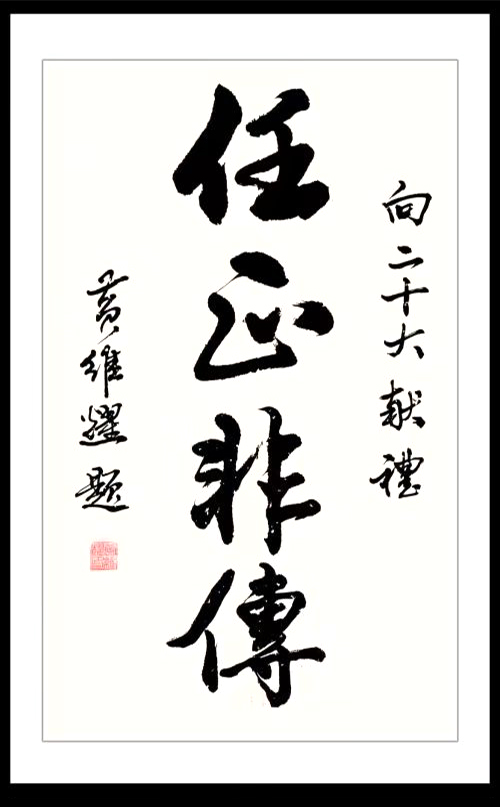 向二十大献禮
任正非傳
黄維耀題